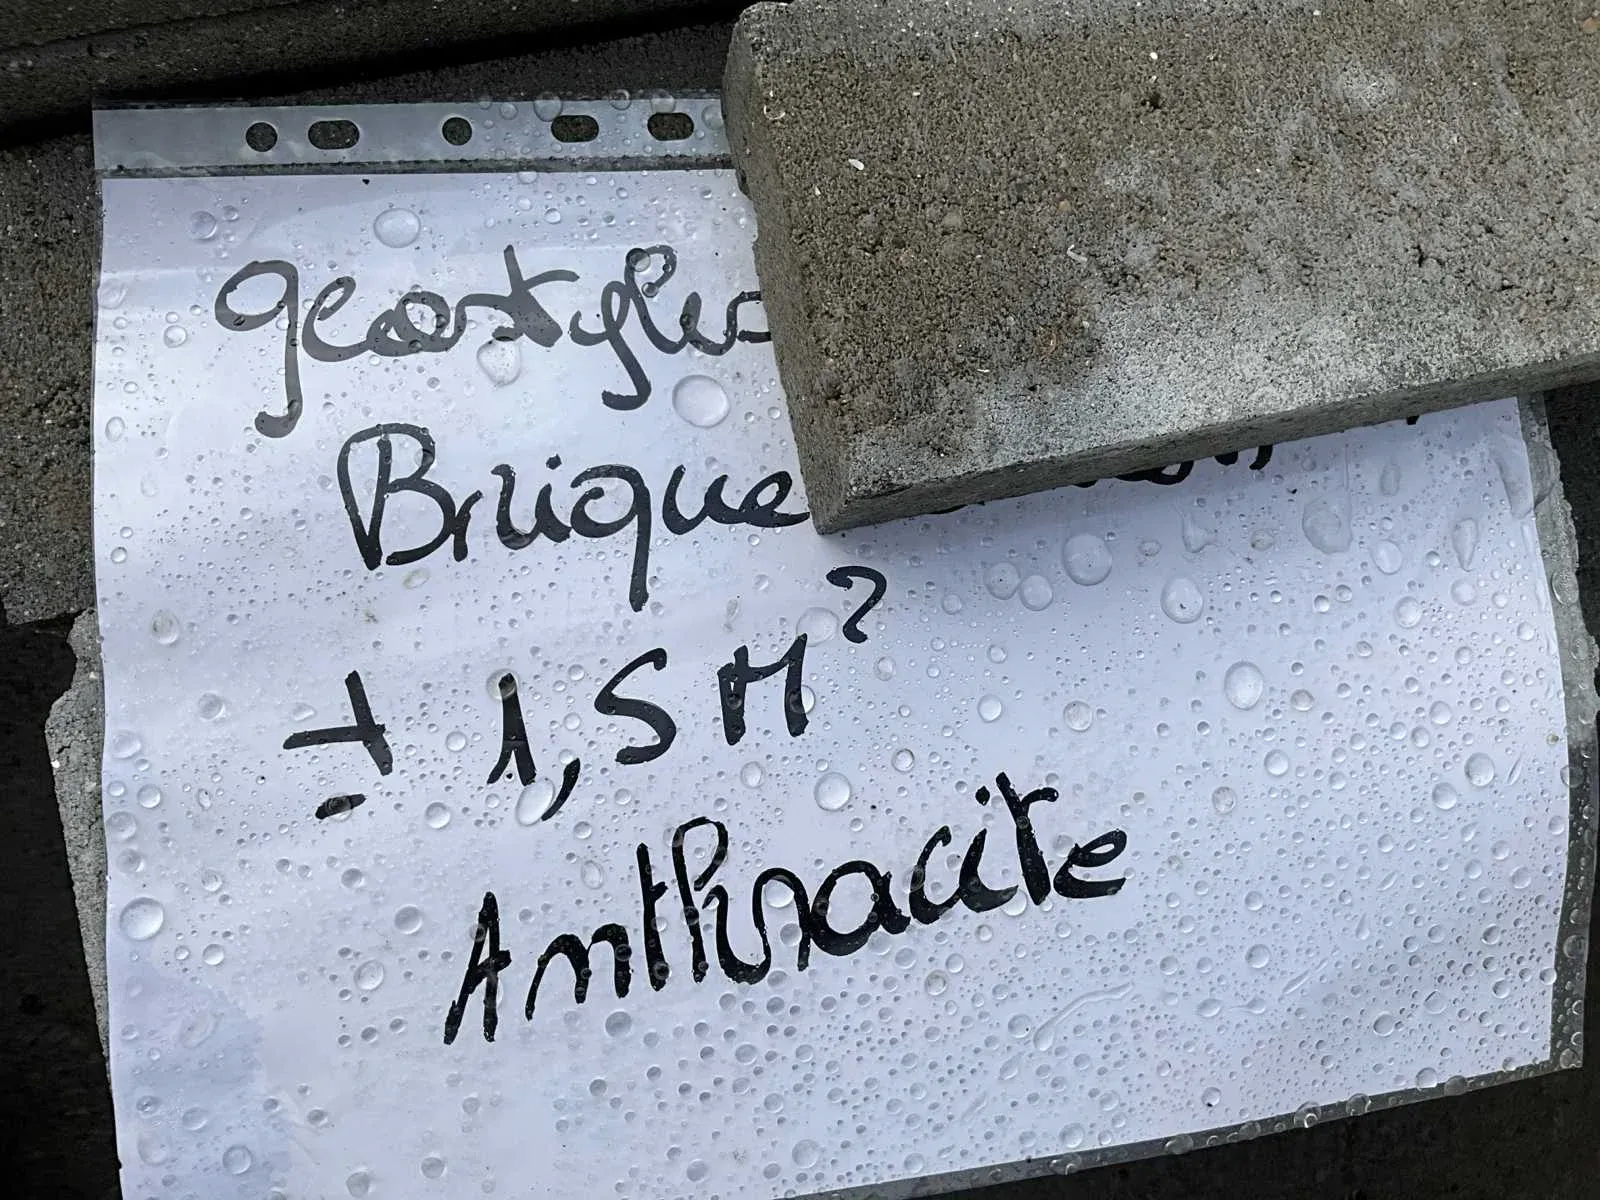 geostylis
Brique
± 1,5 M²
Anthracite